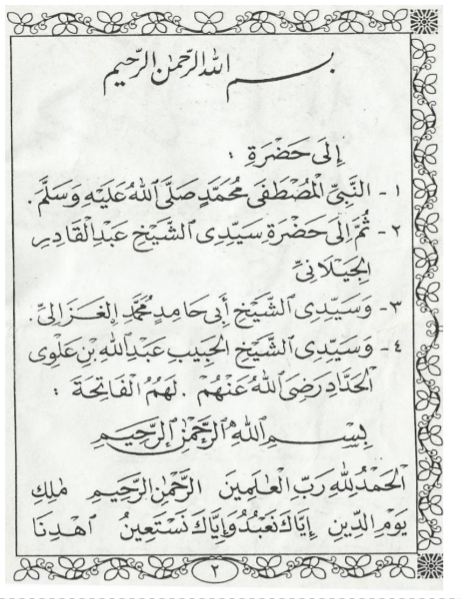 بسم الله الرحمن الرحيم
إِلَى حَضْرَةِ :
١- النَّبِيِّ الْمُصْطَفَى مُحَمَّدٍ صَلَّى اللهُ عَلَيْهِ وَسَلَّمَ.
٢- ثُمَّ إِلَى حَضْرَةِ سَيِّدِى الشَّيْخِ عَبْدِ الْقَادِرِ
الْجَيْلَانِيِّ
٣- وَسَيِّدِى الشَّيْخِ أَبِى حَامِدٍ مُحَمَّدٍ الْغَزَالِيِّ.
٤- وَسَيِّدِى الشَّيْخِ الْحَبِيبِ عَبْدِ اللهِ بْنِ عَلَوِى
الْحَدَّادِ رَضِىَ اللهُ عَنْهُمْ . لَهُمُ الْفَاتِحَةَ :
بِسْمِ اللهِ الرَّحْمٰنِ الرَّحِيمِ
اَلْحَمْدُ لِلّٰهِ رَبِّ الْعٰلَمِينَ الرَّحْمٰنِ الرَّحِيمِ مٰلِكِ
يَوْمِ الدِّينِ إِيَّاكَ نَعْبُدُ وَإِيَّاكَ نَسْتَعِينُ اهْدِنَا
٢